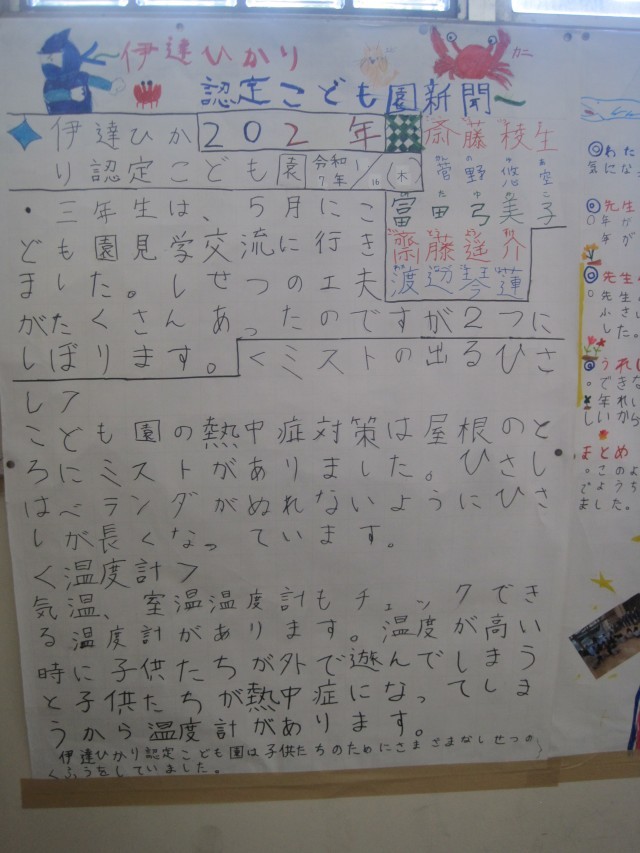 伊達ひかり
認定こども園新聞
伊達ひか
り認定こども園
2022年
令和7年1/16(木)
斎藤稜生
菅野悠空
富田弓美子
齋藤遥介
渡辺蓮
・三年生は、5月にこ
ども園見学交流に行き
ました。しせつの工夫
がたくさんあったのですが2つに
しぼります。
<ミストの出るひさ
し>
こども園の熱中症対策は屋根のと
ろにミストがありました。ひさし
はベランダがぬれないようにひさ
しが長くなっています。
<温度計>
気温、室温温度計もチェックでき
る温度計があります。温度が高い
時に子供たちが外で遊んでしまう
と子供たちが熱中症になってしま
うから温度計があります。
伊達ひかり認定こども園は子供たちのためにさまざまなしせつの
くふうをしていました。
◎わた
気にな
◎先生
◎先生
先生
小さい
した。
◎うれし
できな
まとめ
ました。